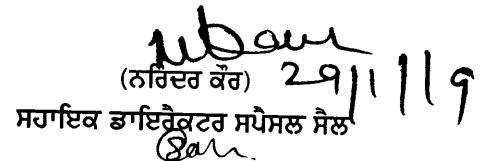 (ਨਰਿੰਦਰ ਕੌਰ) 29/1/19
ਸਹਾਇਕ ਡਾਇਰੈਕਟਰ ਸਪੈਸਲ ਸੈਲ